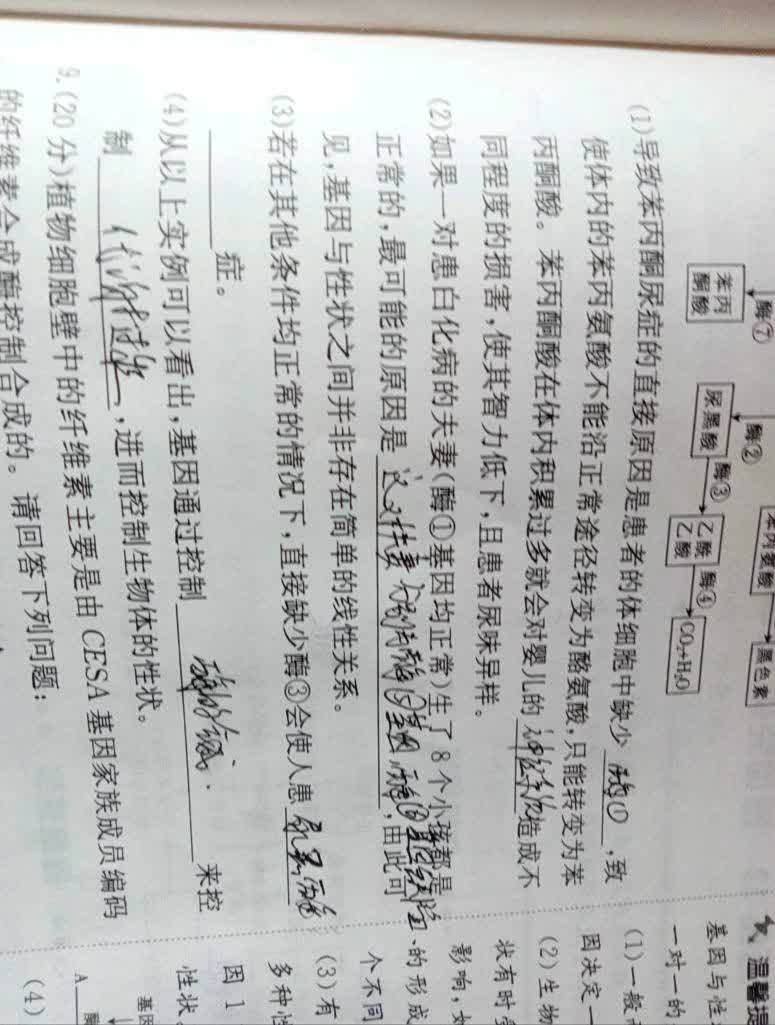 酶⑦
苯丙
酮酸
酶②
尿黑酸
酶③
乙酰
乙酸
酶④
CO₂+H₂O
黑色素
(1)导致苯丙酮尿症的直接原因是患者的体细胞中缺少 酶① ,致
使体内的苯丙氨酸不能沿正常途径转变为酪氨酸,只能转变为苯
丙酮酸。苯丙酮酸在体内积累过多就会对婴儿的 神经系统 造成不
同程度的损害,使其智力低下,且患者尿味异样。
(2)如果一对患白化病的夫妻(酶①基因均正常)生了8个小孩都是
正常的,最可能的原因是 ,由此可
见,基因与性状之间并非存在简单的线性关系。
(3)若在其他条件均正常的情况下,直接缺少酶③会使人患 尿黑酸
症。
(4)从以上实例可以看出,基因通过控制 来控
制 代谢过程 ,进而控制生物体的性状。
9.(20分)植物细胞壁中的纤维素主要是由CESA基因家族成员编码
的纤维素合成酶控制合成的。请回答下列问题:
温馨提
基因与性
一对一的
(1)一般
因决定一
(2)生物
状有时受
影响,如
的形成
个不同
(3)有
多种性
因1
性状
基因
A
酶
(4)